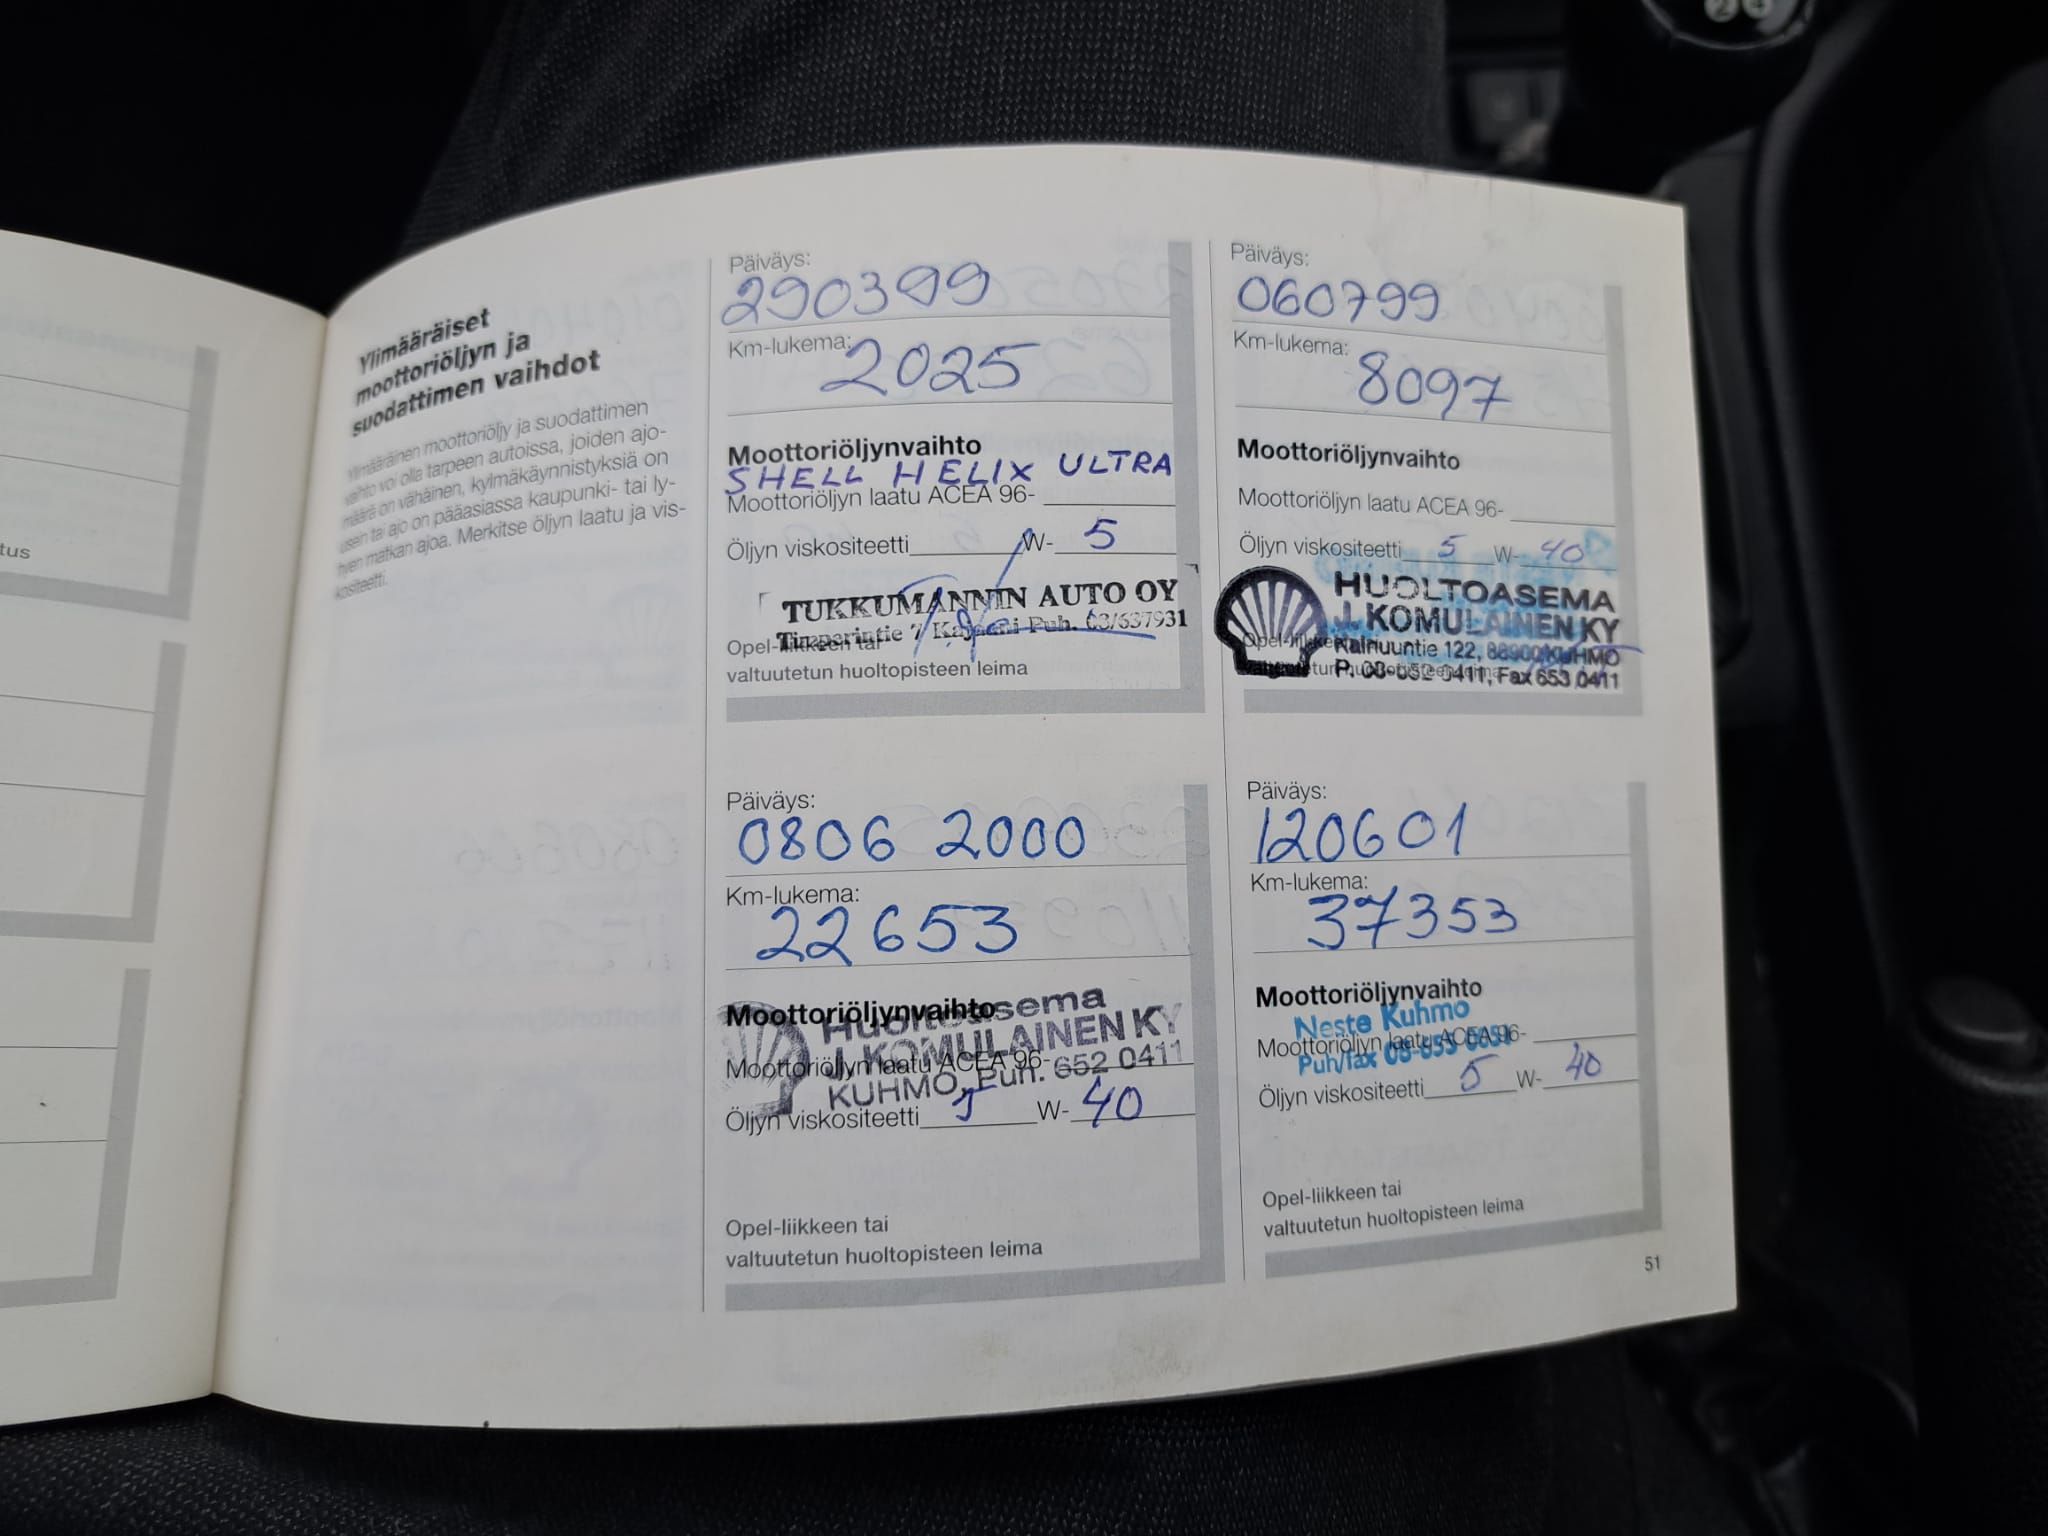 tus
Ylimääräiset
moottoriöljyn ja
suodattimen vaihdot
Ylimääräinen moottoriöljy ja suodattimen
vaihto voi olla tarpeen autoissa, joiden ajo-
määrä on vähäinen, kylmäkäynnistyksiä on
usein tai ajo on pääasiassa kaupunki- tai ly-
hyen matkan ajoa. Merkitse öljyn laatu ja vis-
kositeetti.
Päiväys:
290399
Km-lukema:
2025
Moottoriöljynvaihto
SHELL HELIX ULTRA
Moottoriöljyn laatu ACEA 96-
Öljyn viskositeetti W- 5
TUKKUMANNIN AUTO OY
Timperintie 7 Kajaani Puh. 08/637931
Opel-liikkeen tai
valtuutetun huoltopisteen leima
Päiväys:
060799
Km-lukema:
8097
Moottoriöljynvaihto
Moottoriöljyn laatu ACEA 96-
Öljyn viskositeetti 5 W- 40
HUOLTOASEMA
J. KOMULAINEN KY
Kainuuntie 122, 88900 KUHMO
P. 08-652 0411, Fax 653 0411
Päiväys:
0806 2000
Km-lukema:
22653
Moottoriöljynvaihto
Huoltoasema
J. KOMULAINEN KY
Moottoriöljyn laatu ACEA 96-
KUHMO, Puh. 652 0411
Öljyn viskositeetti 5 W- 40
Opel-liikkeen tai
valtuutetun huoltopisteen leima
Päiväys:
120601
Km-lukema:
37353
Moottoriöljynvaihto
Neste Kuhmo
Moottoriöljyn laatu ACEA 96-
Puh/fax
Öljyn viskositeetti 5 W- 40
Opel-liikkeen tai
valtuutetun huoltopisteen leima
51